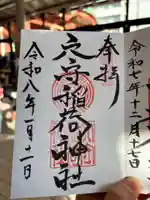 奉拝
穴守稲荷神社
令和八年一月十一日
令和七年十二月十七日